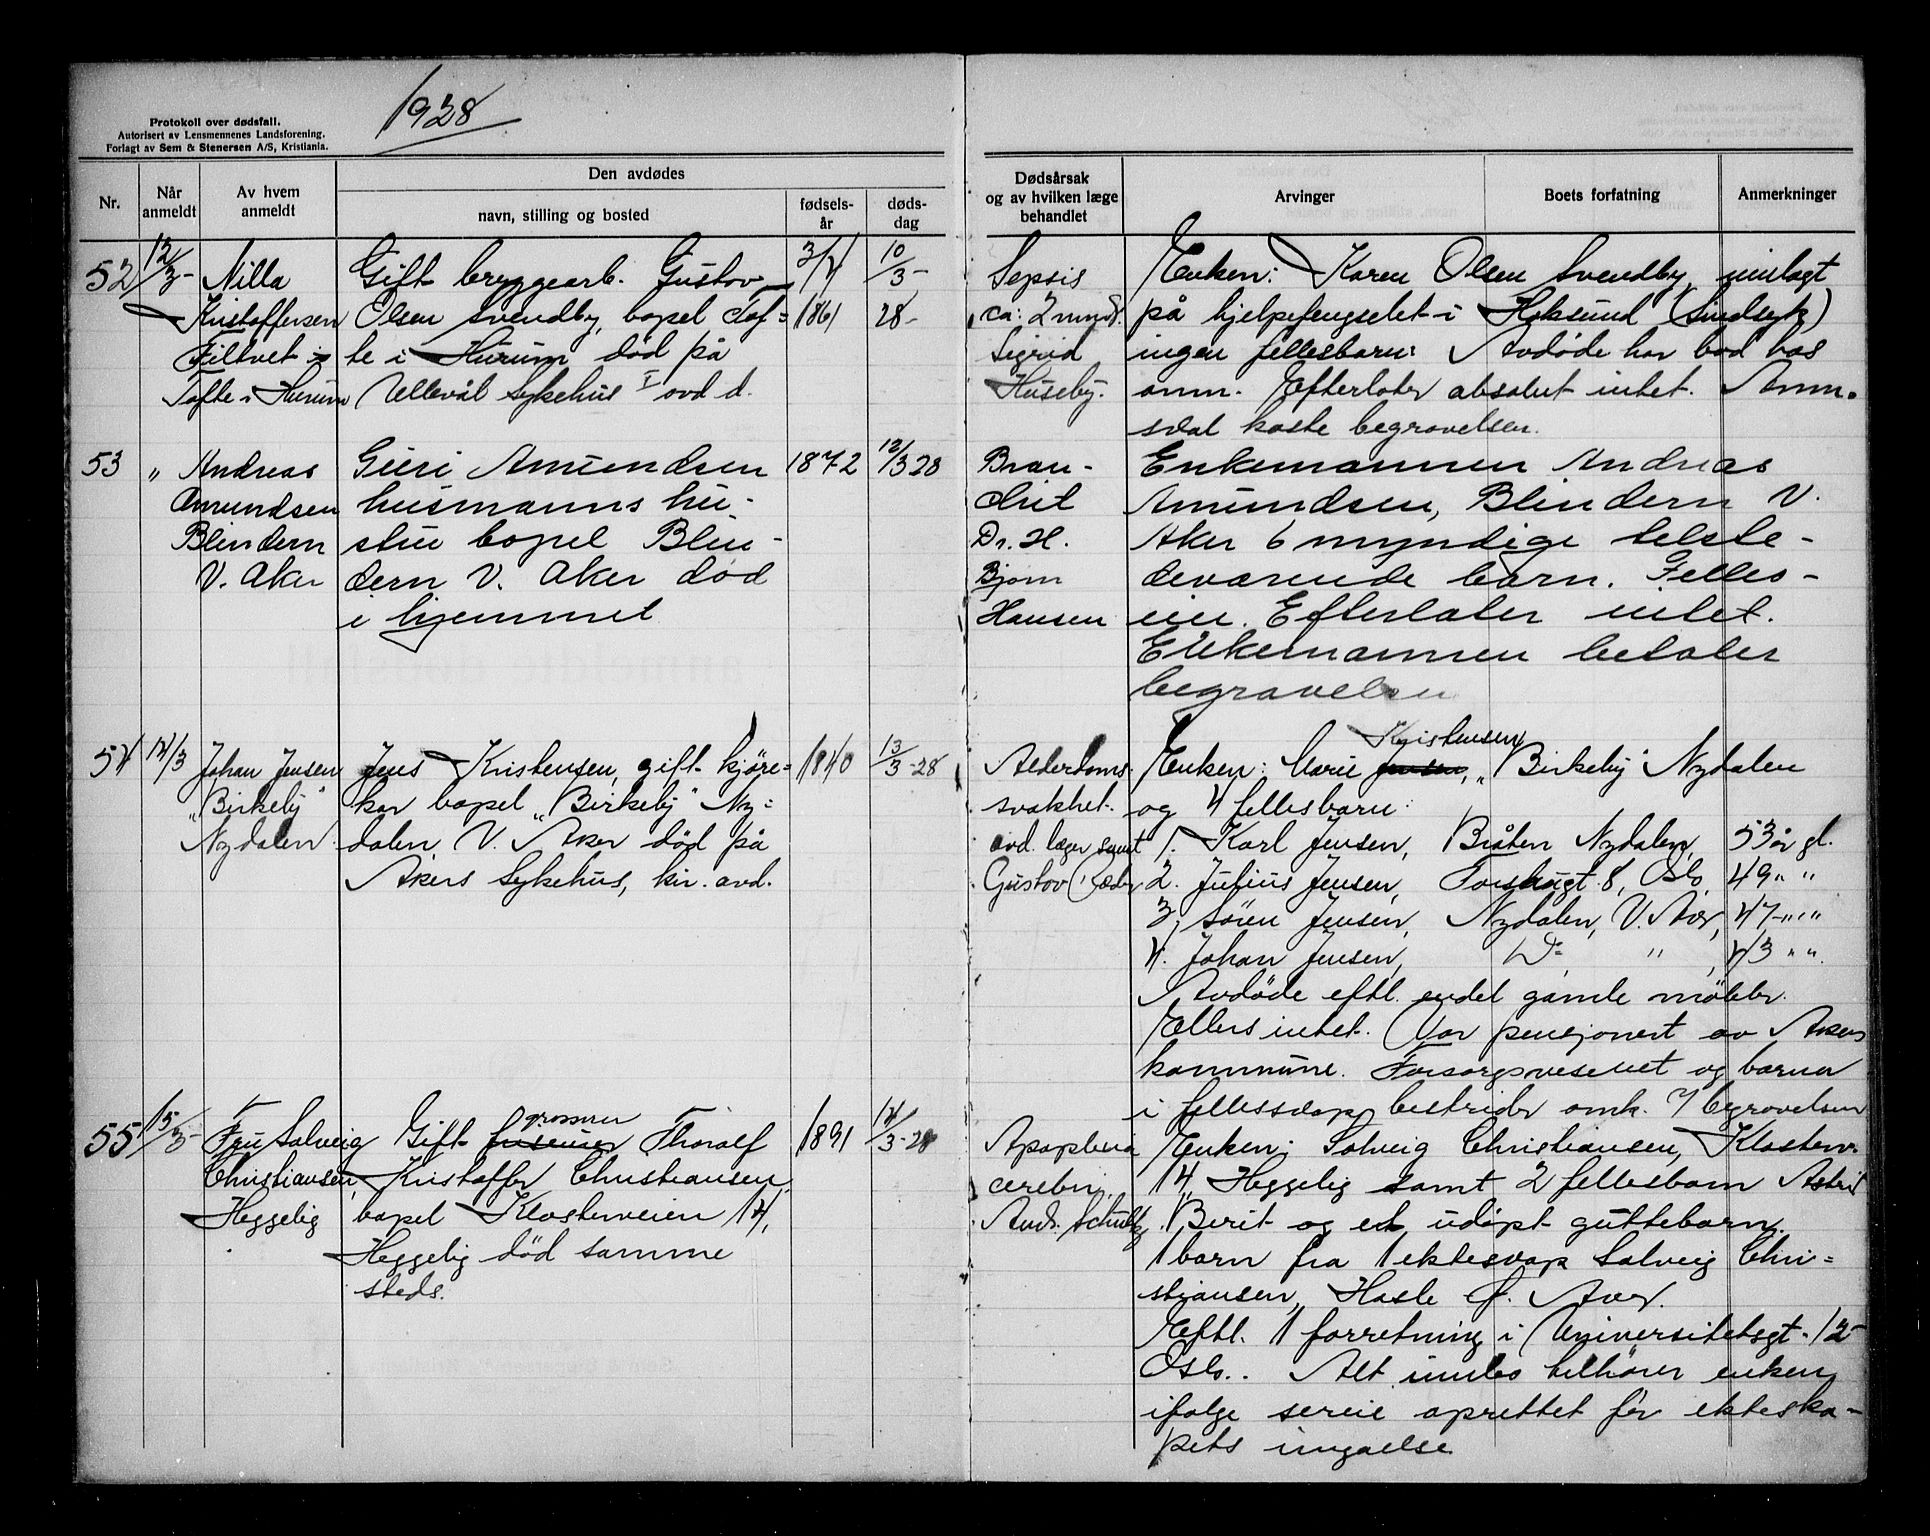 1928
Protokoll over dødsfall.
Autorisert av Lensmennenes Landsforening.
Forlagt av Sem & Stenersen A/S, Kristiania.
Nr.
Når anmeldt
Av hvem anmeldt
Den avdødes
navn, stilling og bosted
fødsels-år
døds-dag
Dødsårsak og av hvilken læge behandlet
Arvinger
Boets forfatning
Anmerkninger
52
12/3-
Nilla
Kristoffersen
Filtvet i
Tofte i Hurum
Gift bryggearb. Gustov
Olsen Svendby, bopel Tof=
te i Hurum død på
Ullevål Sykehus I avd d.
3/4
1861
10/3-
28-
Sepsis
ca: 2 mndr.
Sigrid
Huseby.
Enken: Karen Olsen Svendby, innlagt
på hjelpefengselet i Hoksund (Sindsyk)
ingen fellesbarn. Avdøde har bod hos
anm. Efterlater absolut intet. Anm.
skal koste begravelsen.
53
"
Andreas
Amundsen
Blindern
V. Aker
Guri Amundsen
husmanns hu-
stru bopel Blin-
dern V. Aker død
i hjemmet
1872
12/3 28
Bron-
chit
Dr. H.
Bjørn
Hansen
Enkemannen Andreas
Amundsen, Blindern V.
Aker 6 myndige tilste-
deværende barn. Felles-
eie. Efterlater intet.
Enkemannen betaler
begravelsen
54
14/3
Johan Jensen
"Birkeby"
Nydalen
Jens Kristensen, gift kjøre=
kar bopel "Birkeby" Ny=
dalen V. Aker død på
Akers Sykehus, kir. avd.
1840
13/3-28
Alderdoms-
svakhet.
avd. læger samt
Gustov
Kristensen
Enken: Marie Jensen, "Birkeby" Nydalen
og 4 fellesbarn:
1. Karl Jensen, Bråten Nydalen, 53 år gl.
2. Julius Jensen, 8, Oslo, 49 " "
3. Søren Jensen, Nydalen, V. Aker, 47 " "
4. Johan Jensen, D= " , 43 " "
Avdøde eftl. endel gamle møbler.
Ellers intet. Var pensjonert av Akers
kommune. Forsorgsvesenet og barna
i fellesskap bestrider omk. v/ begravelsen
55
15/3-
Fru Solveig
Christiansen,
Heggelig
grosserer
Gift Thoralf
Kristoffer Christiansen,
bopel Klosterveien 14,
Heggelig død samme
steds.
1891
14/3-28
Apoplexia
cerebri.
Andr. Schultz
Enken: Solveig Christiansen, Klosterv.
14, Heggelig samt 2 fellesbarn Astrid
Berit og et udøpt guttebarn,
1 barn fra 1 ekteskap Solveig Chri=
stiansen, Hasle Ø. Aker.
Eftl. 1 forretning i Universitetsgt. 12
Oslo. Alt innbo tilhører enken
ifølge særeie oprettet før ekteska-
pets inngåelse